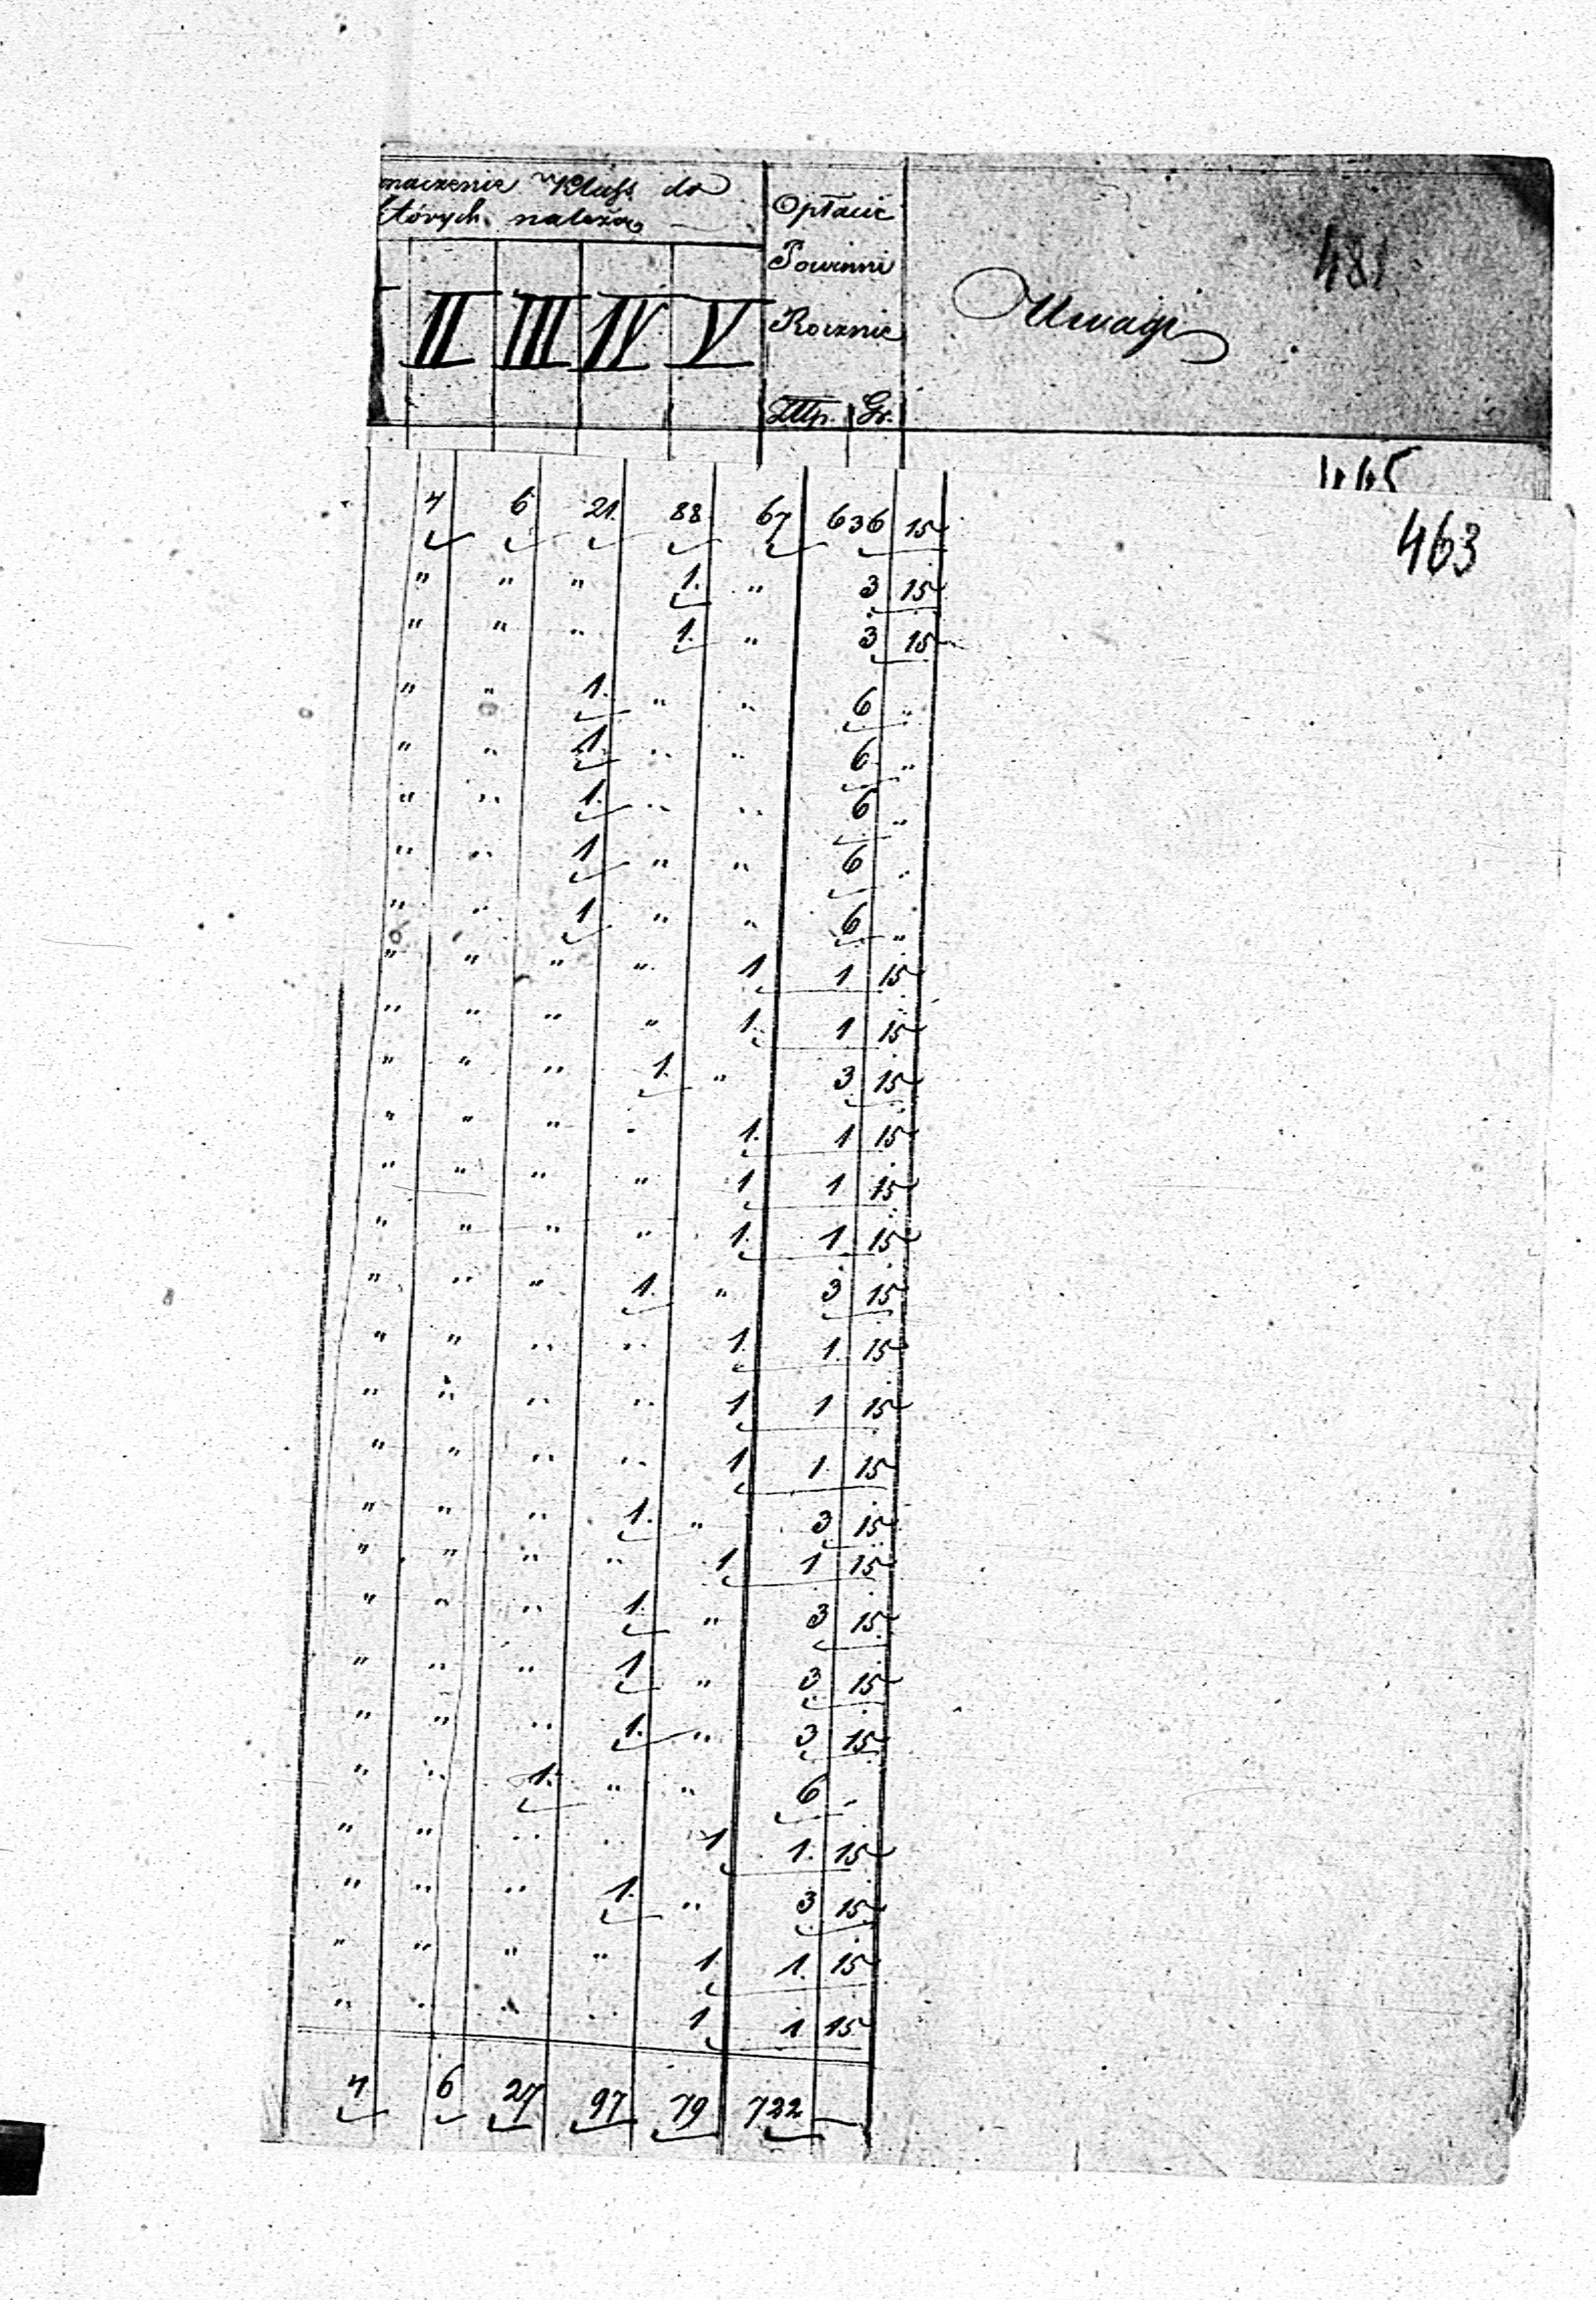 naczenie Klass do
których należą
Opłacić
Powinni
Rocznie
Złtp. Gr.
II III IV V
Uwagi
481
463
4 6 21. 88 67 636 15
" " " 1. " 3 15
" " " 1. " 3 15
" " 1. " " 6 "
" " 1. " " 6 "
" " 1. " " 6 "
" " 1 " " 6 "
" " 1 " " 6 "
" " " " 1 1 15
" " " " 1. 1 15
" " " 1. " 3 15
" " " " 1. 1 15
" " " " 1 1 15
" " " " 1. 1 15
" " " 1. " 3 15
" " " " 1. 1. 15
" " " " 1 1 15
" " " " 1 1. 15
" " " 1. " 3 15
" " " " 1 1 15
" " " 1. " 3 15
" " " 1 " 3 15
" " " 1. " 3 15
" " 1. " " 6 "
" " " " 1 1. 15
" " " 1. " 3 15
" " " " 1. 1. 15
" " " " 1 1 15
4 6 27 97 79 722 —